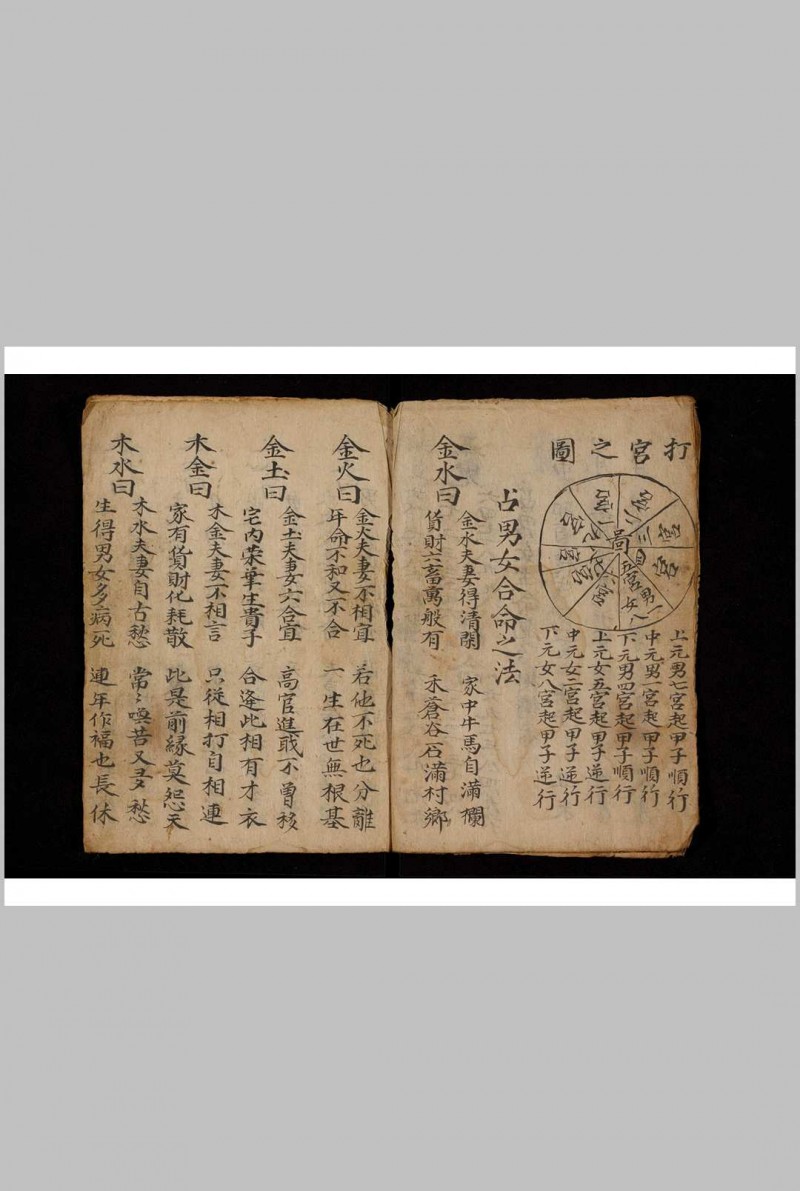 打宮之圖
圖
上元男七宮起甲子順行
中元男一宮起甲子順行
下元男四宮起甲子順行
上元女五宮起甲子逆行
中元女二宮起甲子逆行
下元女八宮起甲子逆行
占男女合命之法
金水曰
金水夫妻得清閑 家中牛馬自滿欄
貨財六畜萬般有 禾蒼谷石滿村鄉
金火曰
金火夫妻不相宜 若他不死也分離
年命不和又不合 一生在世無根基
金土曰
金土夫妻六合宜 高官進戢不曾移
宅内荣華生貴子 合逢此相有才衣
木金曰
木金夫妻不相言 只從相打自相連
家有貨財化耗散 此是前緣莫怨天
木水曰
木水夫妻自古愁 常〻嘆苦又更愁
生得男女多病死 連年作福也長休